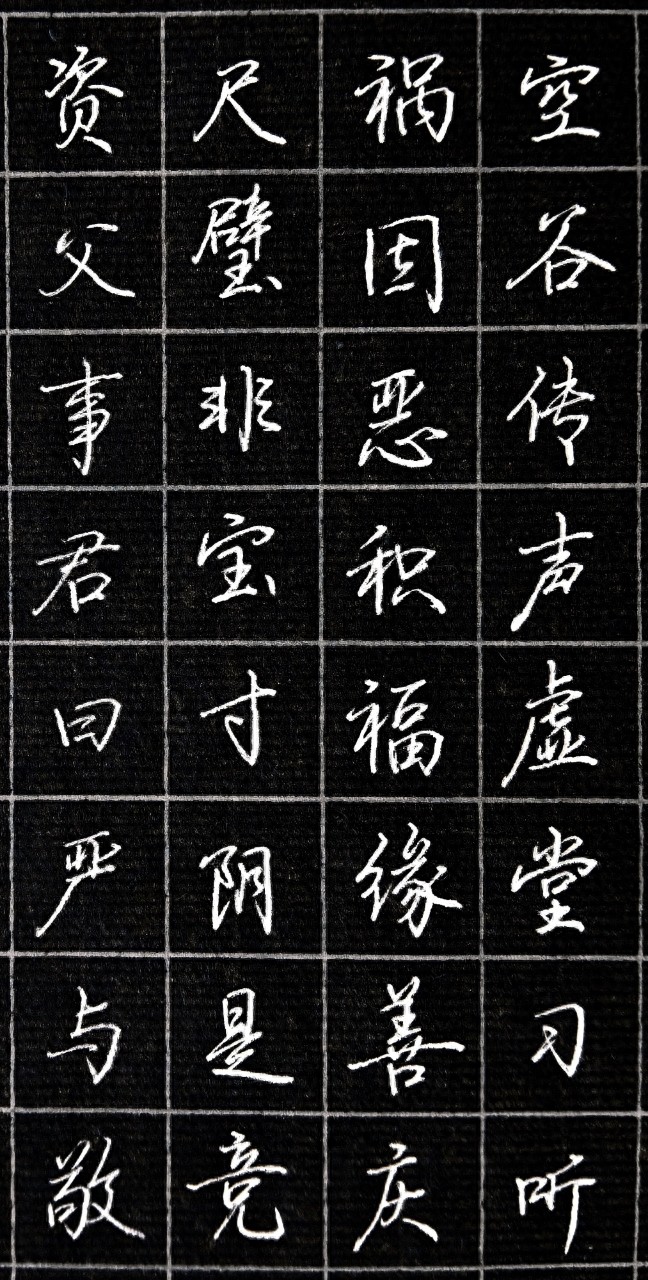 空谷传声虚堂习听
祸因恶积福缘善庆
尺璧非宝寸阴是竞
资父事君曰严与敬